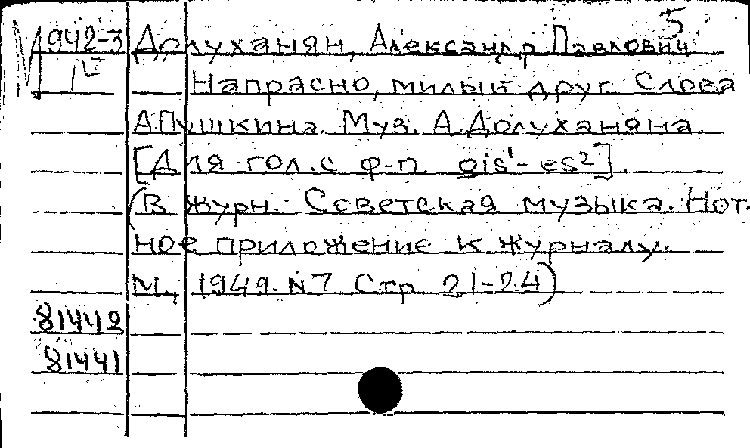 5
М 942-3 Долуханян, Александр Павлович
Напрасно, милый друг. Слова
А.Пушкина. Муз. А.Долуханяна
[Для гол. с ф-п. gis¹-es²].
(В журн.: Советская музыка. Нот-
ное приложение к журналу.
М., 1949. N7 Стр. 21-24)
81442
81441